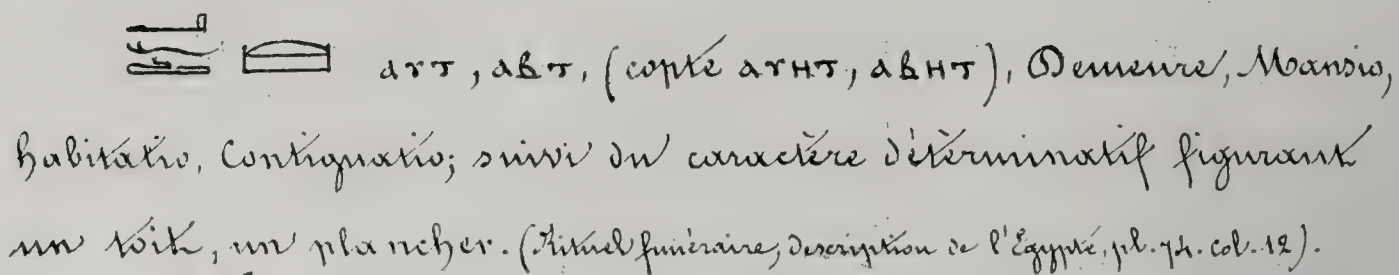 ⲁⲩⲧ, ⲁⲃⲧ, (copte ⲁⲩⲏⲧ, ⲁⲃⲏⲧ), Demeure, Mansio,
habitatio, Contignatio; suivi du caractère déterminatif figurant
un toit, un plancher. (Rituel funéraire, description de l'Égypte, pl. 74. col. 12).